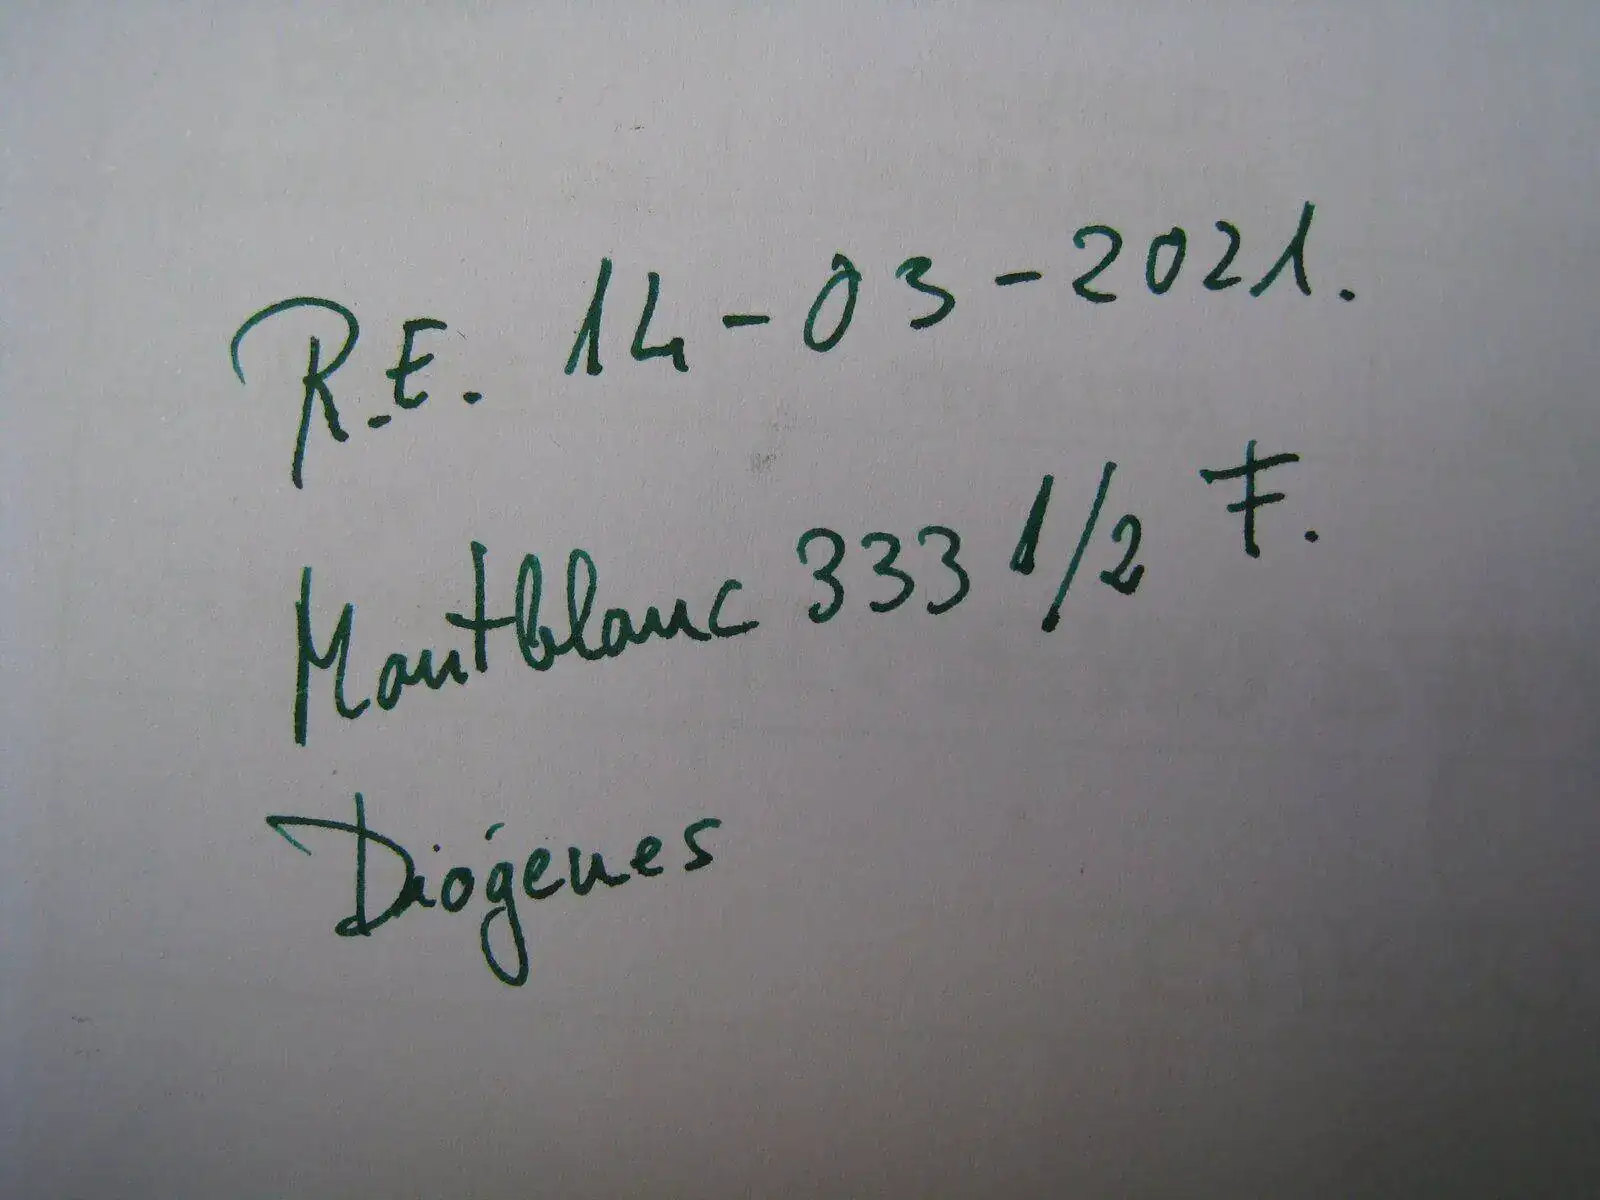 R.E. 14-03-2021.
Montblanc 333 1/2 F.
Diógenes